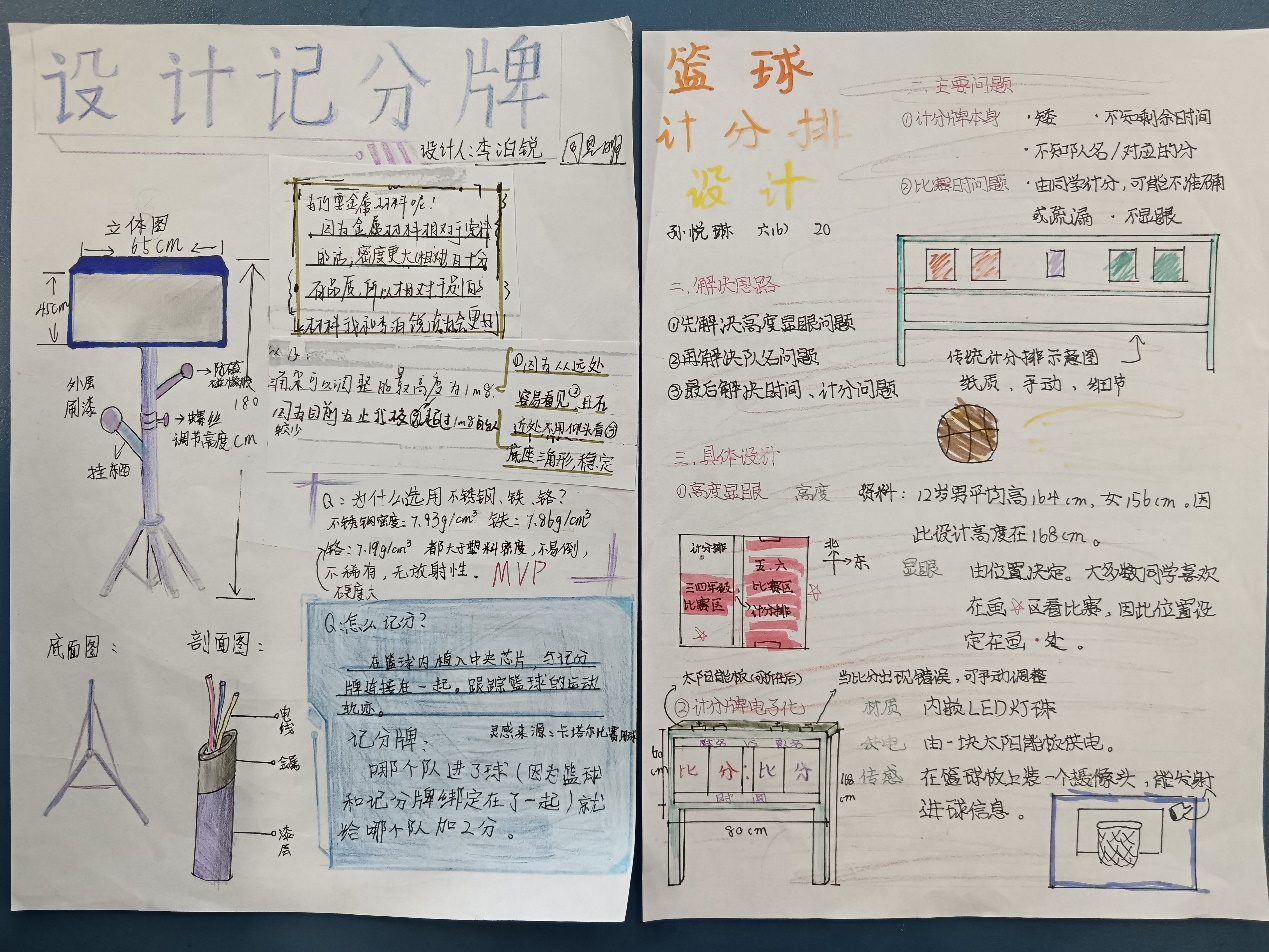 设计记分牌
设计人：李泊锐
立体图
65cm
45cm
外层
刷漆
防磁
180
cm
螺丝
调节高度
挂东西
为何要金属材料呢！
因为金属材料相对于塑料
的话，密度更大(相对)且十分
材料我和李泊锐
角架可以调整的最高度为1m8.
因为目前为止
较少
①因为从远处
容易看见②且在
近处不用仰头看③
底座三角形，稳定
Q：为什么选用不锈钢、铁、铬？
不锈钢密度：7.93g/cm³ 铁：7.86g/cm³
铬：7.19g/cm³ 都大于塑料密度，不易倒，
不稀有，无放射性。MVP
硬度大
Q：怎么记分？
在篮球内植入中央芯片，与记分
牌连接在一起。跟踪篮球的运动
轨迹。
灵感来源：卡塔尔比赛用球
记分牌：
哪个队进了球（因为篮球
和记分牌绑定在了一起）就
给哪个队加2分。
底面图：
剖面图：
电线
金属
漆层
篮球
计分排
设计
孙悦琳 六(6) 20
一、主要问题
①计分牌本身 ·矮 ·不知剩余时间
·不知队名/对应的分
②比赛时问题 ·由同学计分，可能不准确
或疏漏 ·不显眼
传统计分排示意图
纸质、手动、细节
二、解决思路
①先解决高度显眼问题
②再解决队名问题
③最后解决时间、计分问题
三、具体设计
①高度显眼 高度 资料：12岁男平均高164cm，女156cm。因
此设计高度在168cm。
显眼 由位置决定。大多数同学喜欢
在画☆区看比赛，因此位置设
定在画·处。
计分排
三四年级
比赛区
五、六
比赛区
计分排
北
东
太阳能板(可折住后)
当比分出现错误，可手动调整
②计分牌电子化 材质 内嵌LED灯珠
供电 由一块太阳能板供电。
传感 在篮球板上装一个摄像头，能发射
进球信息。
队名 VS 队名
比分：比分
时间
60cm
168cm
80cm